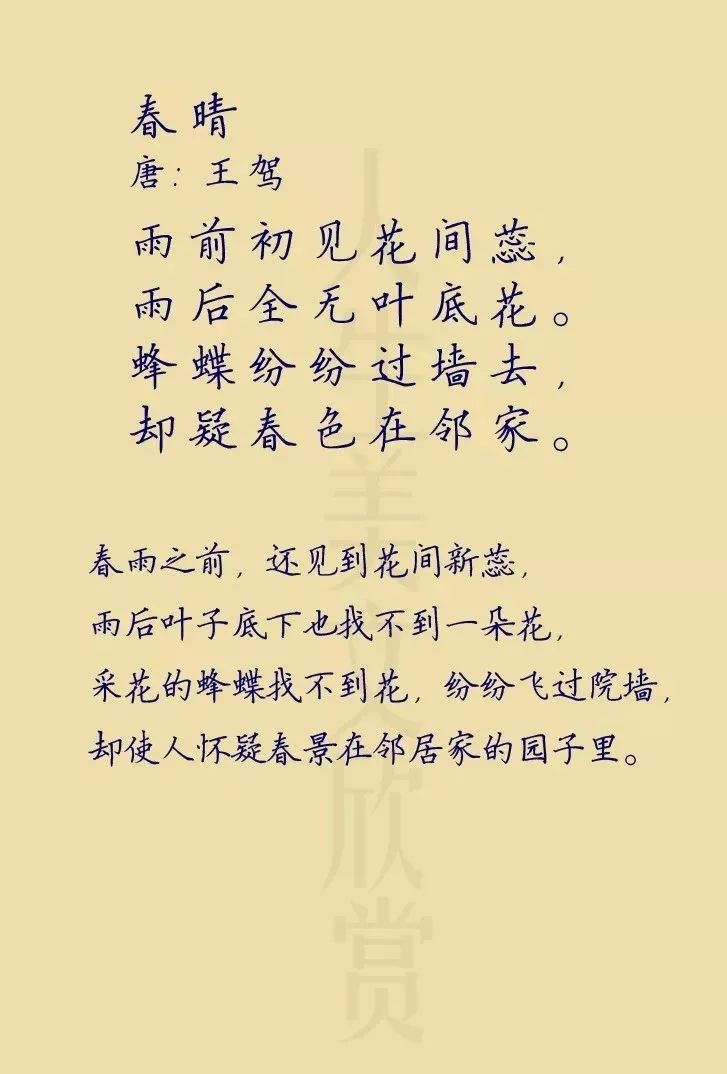 春晴
唐：王驾
雨前初见花间蕊，
雨后全无叶底花。
蜂蝶纷纷过墙去，
却疑春色在邻家。
春雨之前，还见到花间新蕊，
雨后叶子底下也找不到一朵花，
采花的蜂蝶找不到花，纷纷飞过院墙，
却使人怀疑春景在邻居家的园子里。
人生美文欣赏